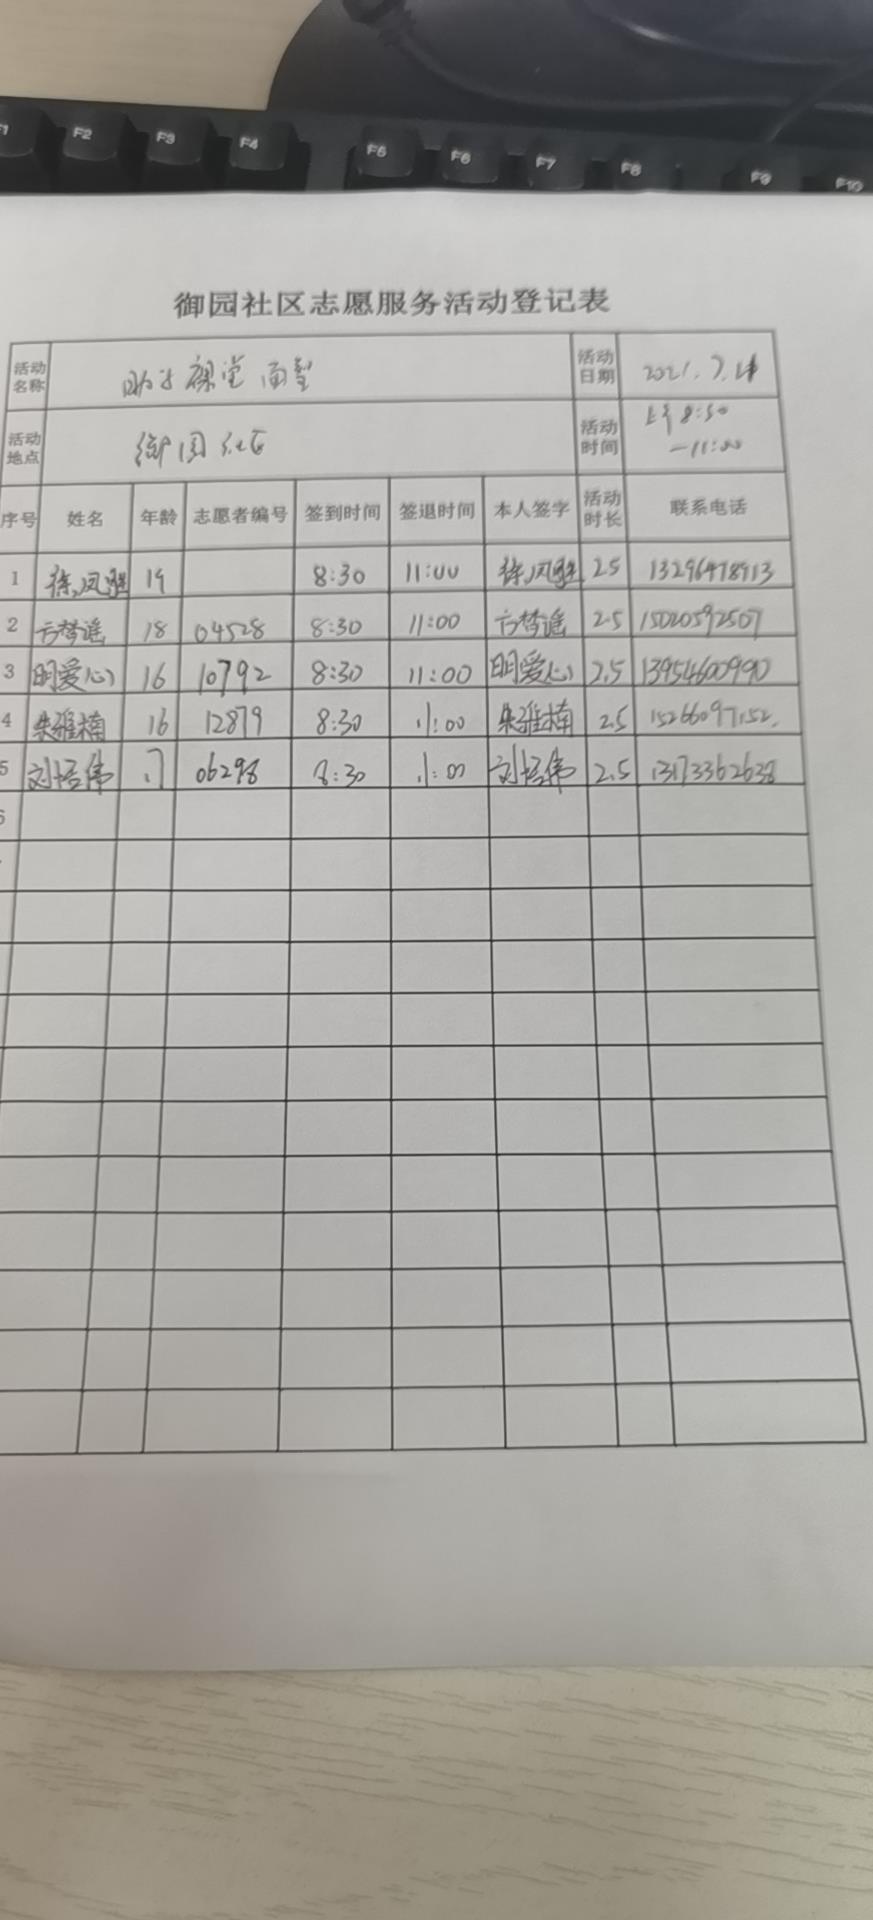 F1 F2 F3 F4 F5 F6 F7 F8 F9 F10
御园社区志愿服务活动登记表
活动名称 课堂 面塑 活动日期 2021.7.14
活动地点 御园社区 活动时间 上午8:30
—11:00
序号 姓名 年龄 志愿者编号 签到时间 签退时间 本人签字 活动时长 联系电话
1 徐凤 19 8:30 11:00 徐凤 2.5 13296478913
2 方梦谣 18 04528 8:30 11:00 方梦谣 2.5 15020592507
3 明爱心 16 10792 8:30 11:00 明爱心 2.5 13954600990
4 朱雅楠 16 12879 8:30 11:00 朱雅楠 2.5 15266097152
5 刘培伟 17 06298 8:30 11:00 刘培伟 2.5 13173362638
6